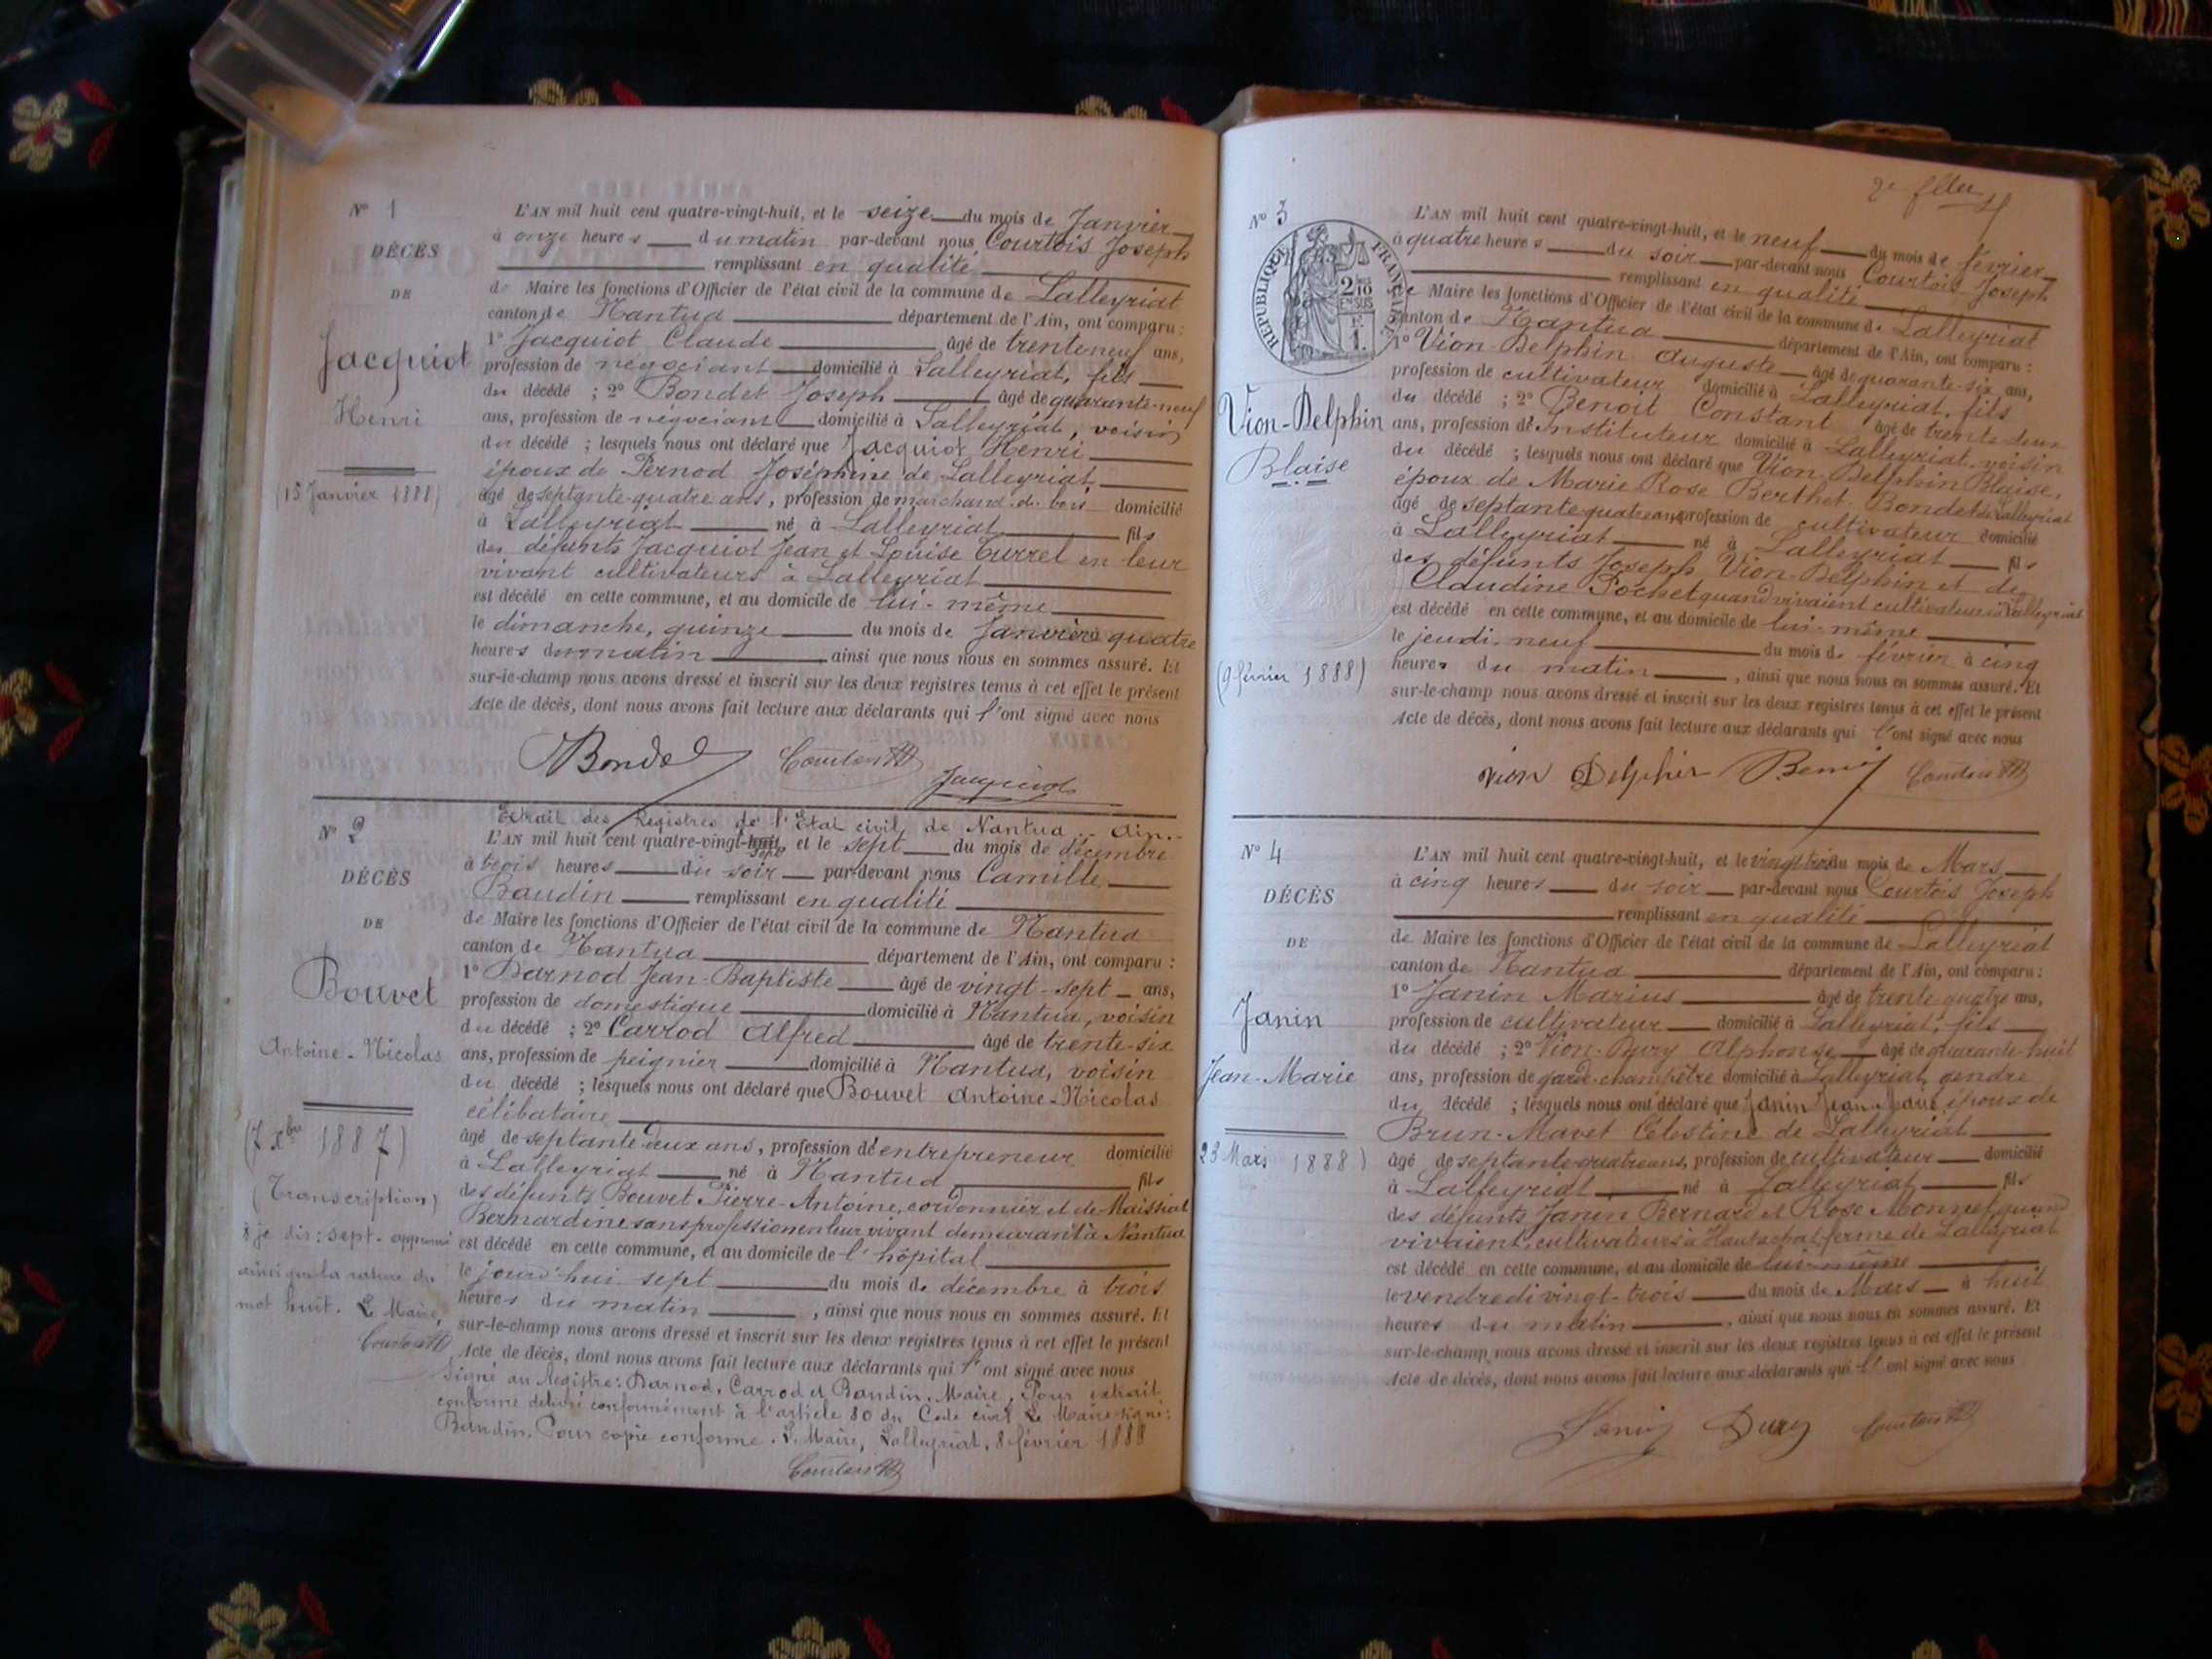 N° 1
DÉCÈS
DE
Jacquiot
Henri
(15 Janvier 1888)
L'AN mil huit cent quatre-vingt-huit, et le seize du mois de Janvier
à onze heures du matin par-devant nous Courtois Joseph
remplissant en qualité
de Maire les fonctions d'Officier de l'état civil de la commune de Lalleyriat
canton de Nantua département de l'Ain, ont comparu :
1° Jacquiot Claude âgé de trente neuf ans,
profession de négociant domicilié à Lalleyriat, fils
du décédé ; 2° Bondet Joseph âgé de quarante-neuf
ans, profession de négociant domicilié à Lalleyriat, voisin
du décédé ; lesquels nous ont déclaré que Jacquiot Henri
époux de Pernod Joséphine de Lalleyriat
âgé de septante-quatre ans, profession de marchand de bois domicilié
à Lalleyriat né à Lalleyriat fils
des défunts Jacquiot Jean et Louise Curret en leur
vivant cultivateurs à Lalleyriat
est décédé en cette commune, et au domicile de lui-même
le dimanche, quinze du mois de Janvier à quatre
heures du matin ainsi que nous nous en sommes assuré. Et
sur-le-champ nous avons dressé et inscrit sur les deux registres tenus à cet effet le présent
Acte de décès, dont nous avons fait lecture aux déclarants qui l'ont signé avec nous
Bondet Courtois Jacquiot
N° 2
DÉCÈS
DE
Bouvet
Antoine-Nicolas
(7 xbre 1887)
(Transcription)
& je dis : sept. approuvé
ainsi que la rature du
mot huit. Le Maire,
Courtois
Extrait des Registres de l'Etat civil de Nantua - Ain.-
L'AN mil huit cent quatre-vingt-huit, et le sept du mois de décembre
sept
à trois heures du soir par-devant nous Camille
Baudin remplissant en qualité
de Maire les fonctions d'Officier de l'état civil de la commune de Nantua
canton de Nantua département de l'Ain, ont comparu :
1° Darnod Jean-Baptiste âgé de vingt-sept ans,
profession de domestique domicilié à Nantua, voisin
du décédé ; 2° Carrod Alfred âgé de trente-six
ans, profession de peignier domicilié à Nantua, voisin
du décédé ; lesquels nous ont déclaré que Bouvet Antoine-Nicolas
célibataire
âgé de septante deux ans, profession de entrepreneur domicilié
à Lalleyriat né à Nantua fils
des défunts Bouvet Pierre-Antoine, cordonnier et de Maissiat
Bernardine sans profession en leur vivant demeurant à Nantua
est décédé en cette commune, et au domicile de l'hôpital
le jourd'hui sept du mois de décembre à trois
heures du matin , ainsi que nous nous en sommes assuré. Et
sur-le-champ nous avons dressé et inscrit sur les deux registres tenus à cet effet le présent
Acte de décès, dont nous avons fait lecture aux déclarants qui l'ont signé avec nous
Signé au Registre : Darnod, Carrod et Baudin, Maire, Pour extrait
conforme délivré conformément à l'article 80 du Code civil Le Maire signé :
Baudin. Pour copie conforme. Le Maire, Lalleyriat, 8 février 1888
Courtois
N° 3
RÉPUBLIQUE FRANÇAISE
2/10 EN SUS
F. 1.
Vion-Delphin
Blaise
(9 février 1888)
L'AN mil huit cent quatre-vingt-huit, et le neuf du mois de février
à quatre heures du soir par-devant nous Courtois Joseph
remplissant en qualité
de Maire les fonctions d'Officier de l'état civil de la commune de Lalleyriat
canton de Nantua département de l'Ain, ont comparu :
1° Vion-Delphin Auguste âgé de quarante-six ans,
profession de cultivateur domicilié à Lalleyriat, fils
du décédé ; 2° Benoit Constant âgé de trente-deux
ans, profession d'Instituteur domicilié à Lalleyriat, voisin
du décédé ; lesquels nous ont déclaré que Vion-Delphin Blaise,
époux de Marie Rose Berthet-Bondet de Lalleyriat
âgé de septante quatre ans, profession de cultivateur domicilié
à Lalleyriat né à Lalleyriat fils
des défunts Joseph Vion-Delphin et de
Claudine Pochet quand vivaient cultivateurs à Lalleyriat
est décédé en cette commune, et au domicile de lui-même
le jeudi neuf du mois de février à cinq
heures du matin , ainsi que nous nous en sommes assuré. Et
sur-le-champ nous avons dressé et inscrit sur les deux registres tenus à cet effet le présent
Acte de décès, dont nous avons fait lecture aux déclarants qui l'ont signé avec nous
Vion Delphin Benoit Courtois
N° 4
DÉCÈS
DE
Janin
Jean-Marie
23 Mars 1888)
L'AN mil huit cent quatre-vingt-huit, et le vingt trois du mois de Mars
à cinq heures du soir par-devant nous Courtois Joseph
remplissant en qualité
de Maire les fonctions d'Officier de l'état civil de la commune de Lalleyriat
canton de Nantua département de l'Ain, ont comparu :
1° Janin Marius âgé de trente quatre ans,
profession de cultivateur domicilié à Lalleyriat, fils
du décédé ; 2° Vion-Dury Alphonse âgé de quarante-huit
ans, profession de garde-champêtre domicilié à Lalleyriat, gendre
du décédé ; lesquels nous ont déclaré que Janin Jean-Marie époux de
Brun-Mavet Célestine de Lalleyriat
âgé de septante quatre ans, profession de cultivateur domicilié
à Lalleyriat né à Lalleyriat fils
des défunts Janin Bernard et Rose Monnet quand
vivaient, cultivateurs à ferme de Lalleyriat
est décédé en cette commune, et au domicile de lui-même
le vendredi vingt-trois du mois de Mars à huit
heures du matin , ainsi que nous nous en sommes assuré. Et
sur-le-champ nous avons dressé et inscrit sur les deux registres tenus à cet effet le présent
Acte de décès, dont nous avons fait lecture aux déclarants qui l'ont signé avec nous
Janin Dury Courtois